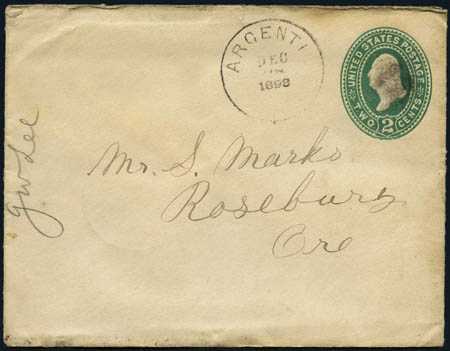 ARGENTI
DEC
1898
UNITED STATES POSTAGE
TWO 2 CENTS
Mr. S. Marks
Roseburg
Ore